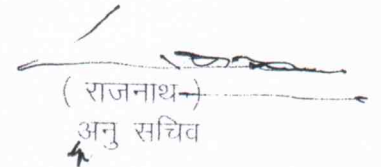 ( राजनाथ )
अनु सचिव